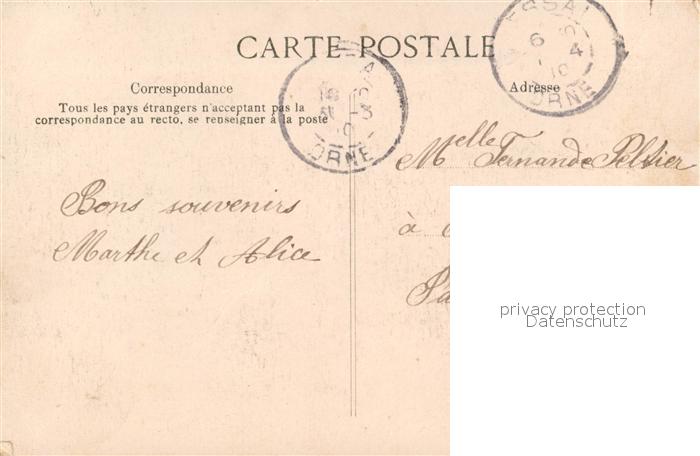 CARTE POSTALE
Correspondance
Tous les pays étrangers n'acceptant pas la
correspondance au recto, se renseigner à la poste
Adresse
ESSAI
6
4
10
ORNE
ORNE
Melle Fernande Peltier
à
Bons souvenirs
Marthe et Alice
privacy protection
Datenschutz